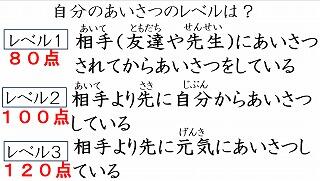 自分のあいさつのレベルは？
レベル１
８０点
相手(友達や先生)にあいさつ
あいて ともだち せんせい
されてからあいさつをしている
レベル２
１００点
相手より先に自分からあいさつ
あいて さき じぶん
している
レベル３
１２０点
相手より先に元気にあいさつし
げんき
ている